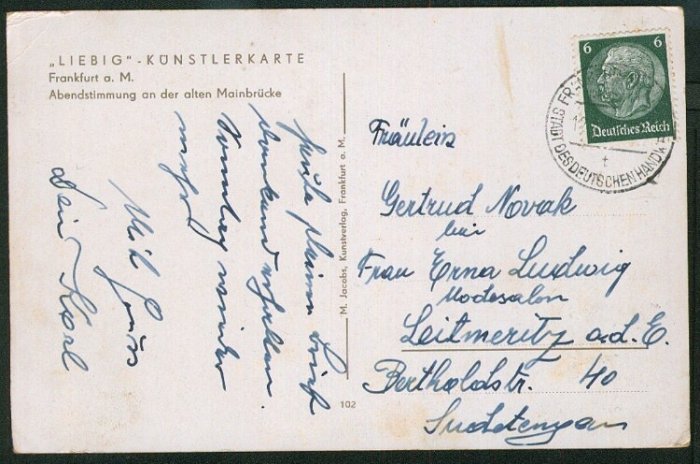 „LIEBIG“-KÜNSTLERKARTE
Frankfurt a. M.
Abendstimmung an der alten Mainbrücke
heute Deinen Brief
dankend erhalten.
Sonntag wieder
mehr
Mit Gruss
Dein Karl
M. Jacobs, Kunstverlag, Frankfurt a. M.
102
6 6
Deutsches Reich
STADT DES DEUTSCHEN HANDW
Fräulein
Gertrud Novak
bei
Frau Erna Ludwig
Modesalon
Leitmeritz a.d.E.
Bertholdstr. 40
Sudetengau